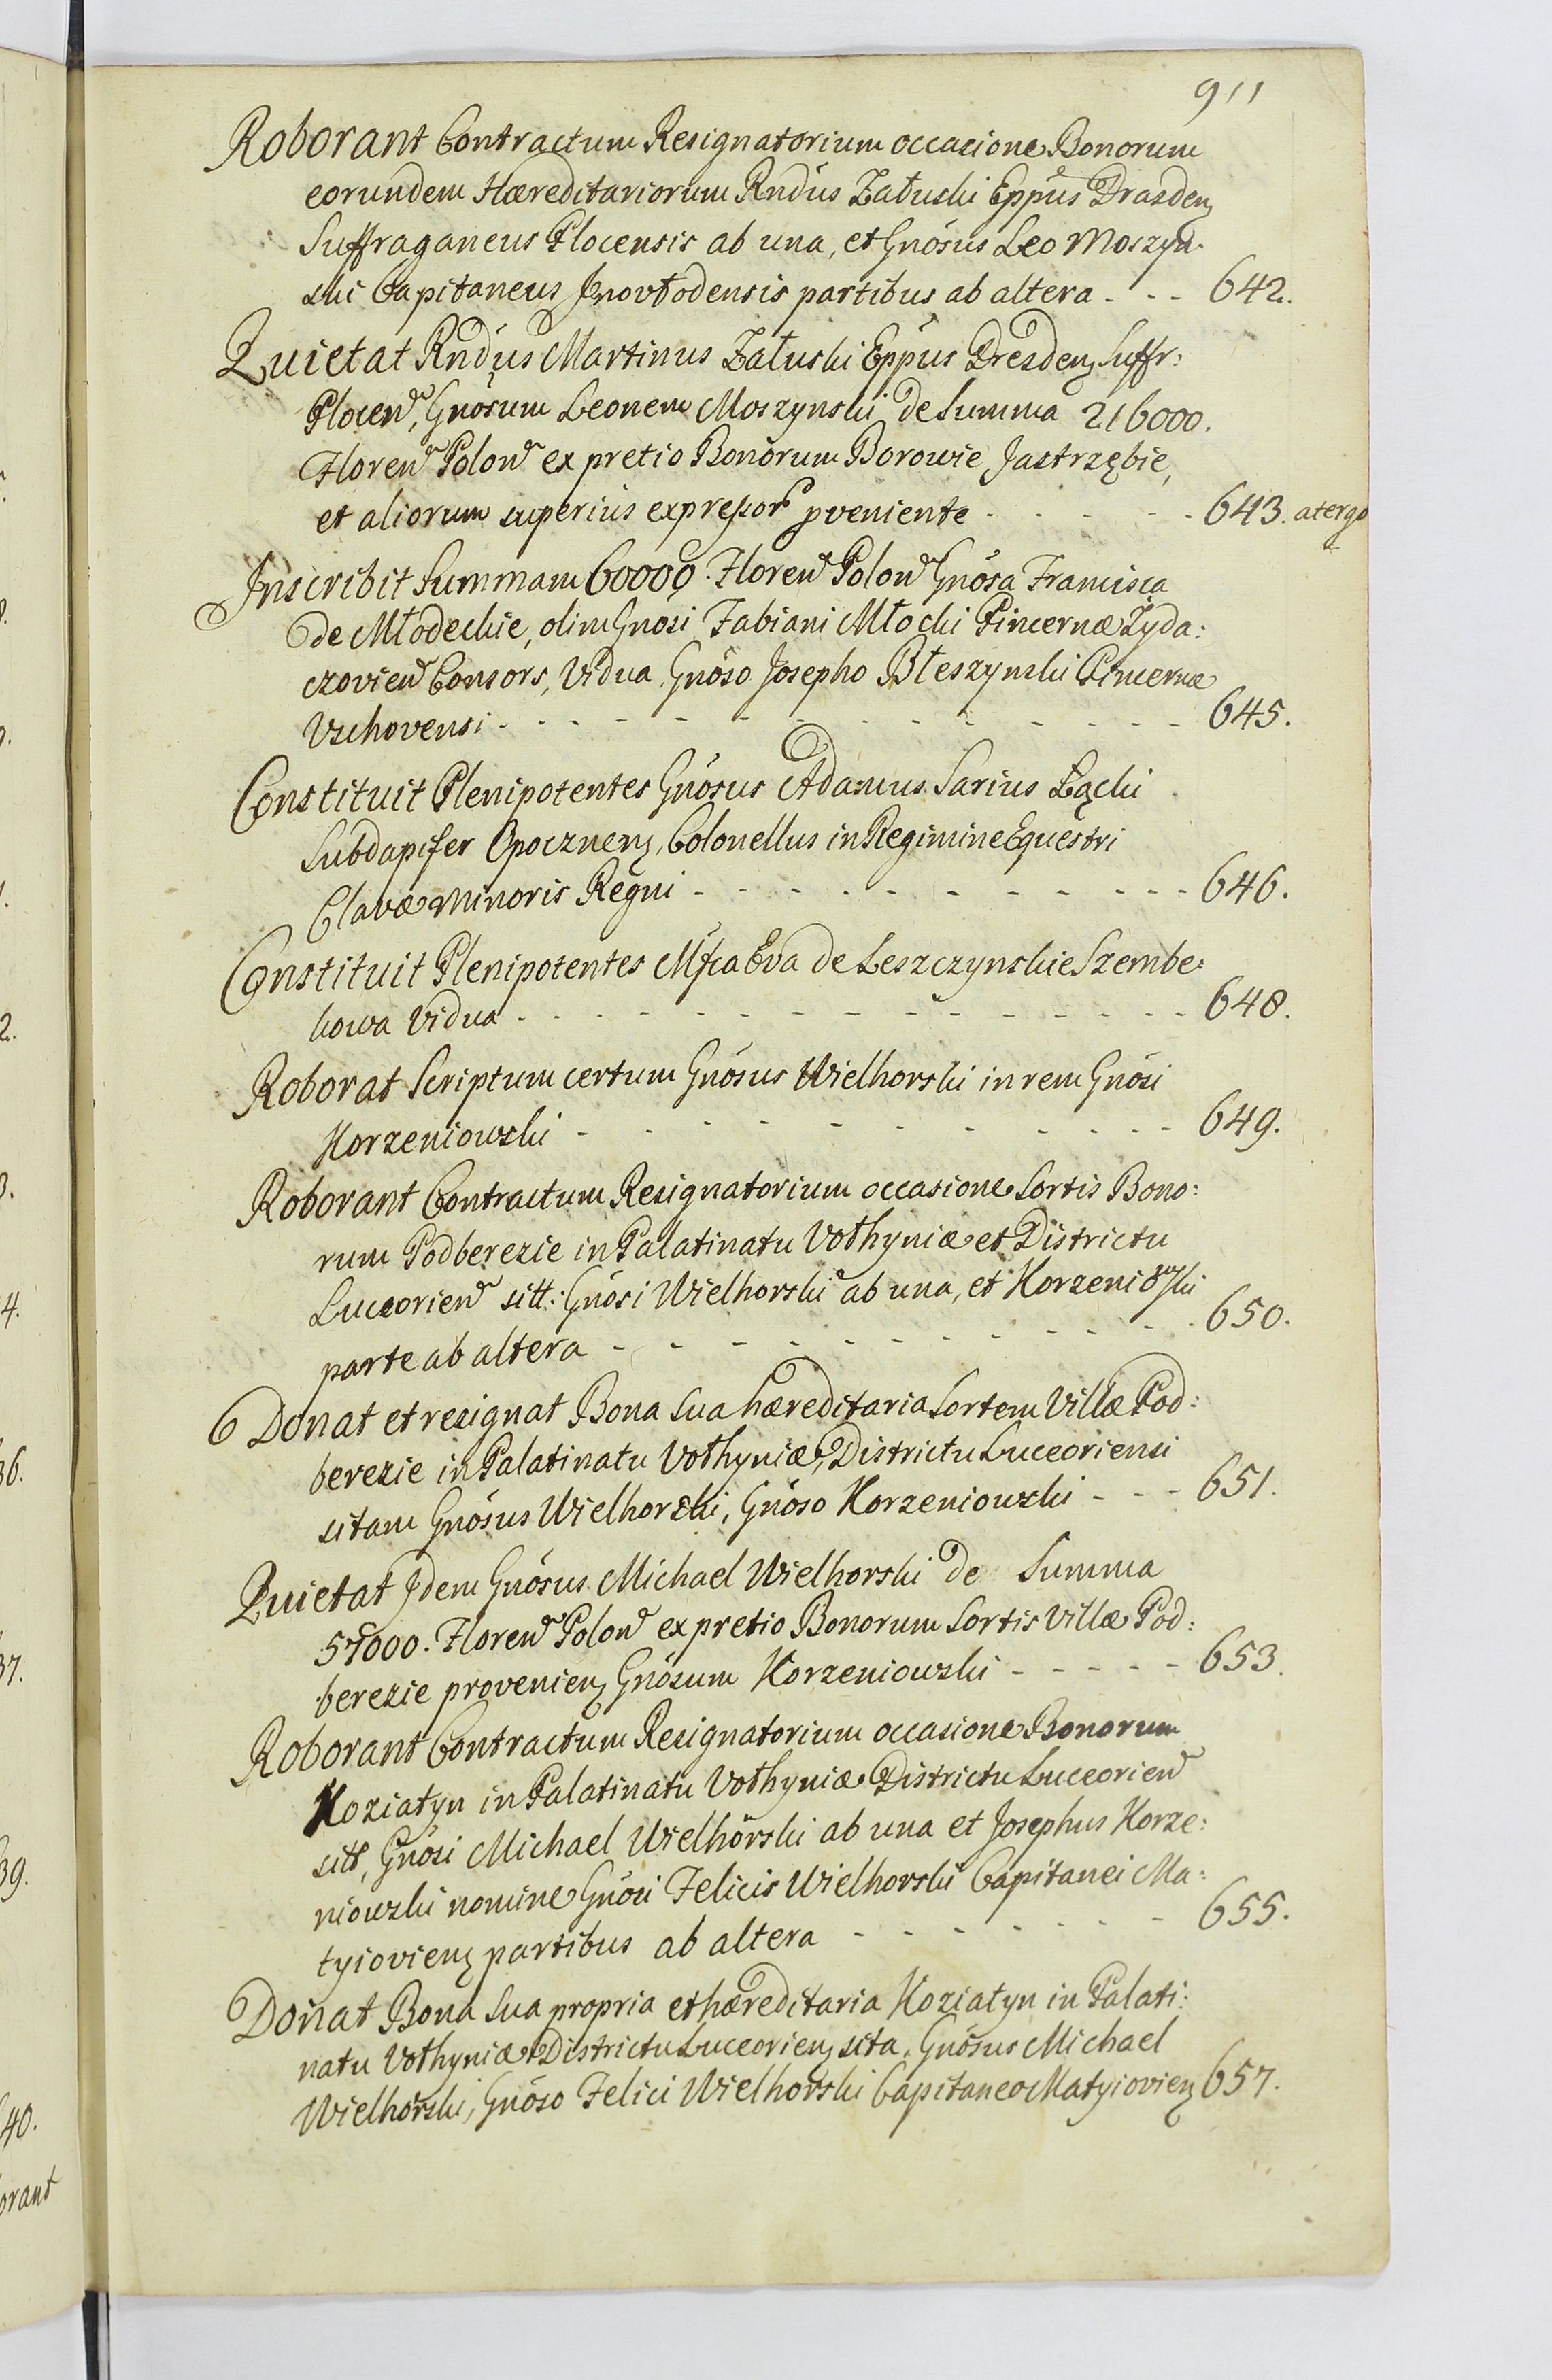 911
Roborant Contractum Resignatorium occasione Bonorum
eorundem Hæreditariorum Rndus Załuski Eppus Drasdenʒ
Suffraganeus Plocensis ab una, et Gnosus Leo Moszyń-
ski Capitaneus Inovłodensis partibus ab altera - - - 642.
Quietat Rndus Martinus Załuski Eppus Dresdenʒ Suffr:
Plocen, Gnosum Leonem Moszynski de Summa 216000.
Floren Polon ex pretio Bonorum Borowie Jastrzębie,
et aliorum superius expressor pveniente - - - - - 643. atergo
Inscribit Summam 60000. Floren Polon Gnosa Francisca
de Młodeckie, olim Gnosi Fabiani Młocki Pincernæ Zyda:
czovien Consors, Vidua, Gnoso Josepho Błeszynski Pincernæ
Vschovensi - - - - - - - - - - - - 645.
Constituit Plenipotentes Gnosus Adamus Sarius Łącki
Subdapifer Opocznenʒ, Colonellus in Regimine Equestri
Clavæ Minoris Regni - - - - - - - - - - 646.
Constituit Plenipotentes Mfca Eva de Leszczynskie Szembe:
kowa Vidua - - - - - - - - - - - - 648.
Roborat Scriptum certum Gnosus Wielhorski in rem Gnosi
Korzeniowski - - - - - - - - - - 649.
Roborant Contractum Resignatorium occasione Sortis Bono:
rum Podberezie in Palatinatu Vołhyniæ et Districtu
Luceorien sitt: Gnosi Wielhorski ab una, et Korzeniowski
parte ab altera - - - - - - - - - - 650.
Donat et resignat Bona sua hæreditaria Sortem Villæ Pod:
berezie in Palatinatu Vołhyniæ, Districtu Luceoriensi
sitam Gnosus Wielhorski, Gnoso Korzeniowski - - - 651.
Quietat Idem Gnosus Michael Wielhorski de Summa
57000. Floren Polon ex pretio Bonorum Sortis Villæ Pod:
berezie provenienʒ Gnosum Korzeniowski - - - - - 653.
Roborant Contractum Resignatorium occasione Bonorum
Koziatyn in Palatinatu Vołhyniæ Districtu Luceorien
sitt, Gnosi Michael Wielhorski ab una et Josephus Korze:
niowski nomine Gnosi Felicis Wielhorski Capitanei Ma:
tyiovienʒ partibus ab altera - - - - - - - 655.
Donat Bona sua propria et hæreditaria Koziatyn in Palati:
natu Vołhyniæ Districtu Luceorienʒ sita, Gnosus Michael
Wielhorski, Gnoso Felici Wielhorski Capitaneo Matyiovienʒ 657.
2.
3.
4.
36.
37.
39.
40.
orant